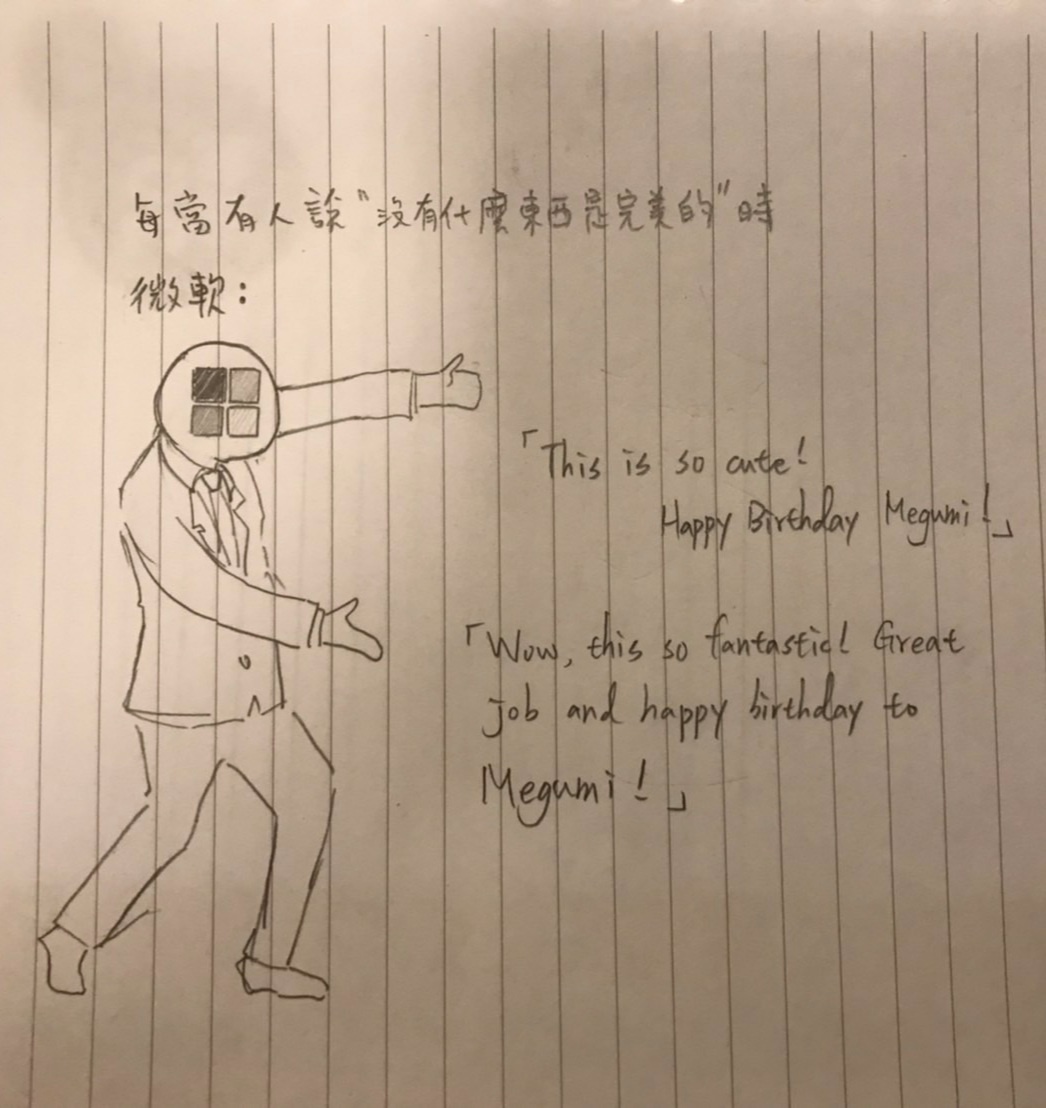 每當有人說"沒有什麼東西是完美的"時
微軟：
「This is so cute!
Happy Birthday Megumi!」
「Wow, this so fantastic! Great
job and happy birthday to
Megumi!」